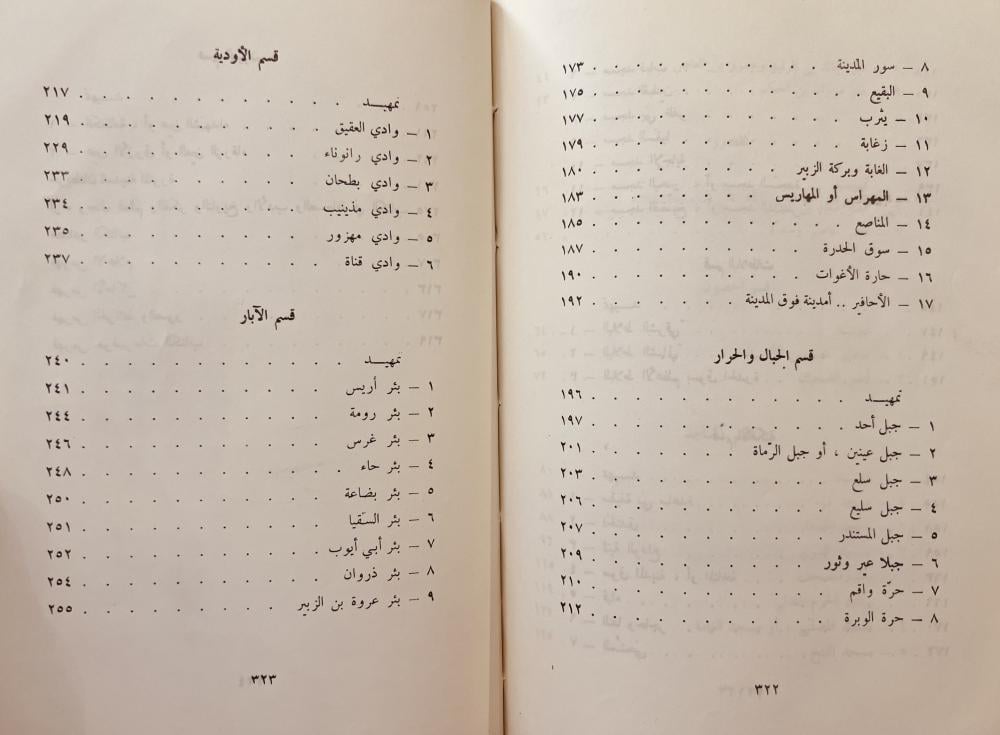 ٨ – سور المدينة . . . . . . . . . . ١٧٣
٩ – البقيع . . . . . . . . . . ١٧٥
١٠ – يثرب . . . . . . . . . . ١٧٧
١١ – زغابة . . . . . . . . . . ١٧٩
١٢ – الغابة وبركة الزبير . . . . . . . . ١٨٠
١٣ – المهراس أو المهاريس . . . . . . . ١٨٣
١٤ – المناصع . . . . . . . . . . ١٨٥
١٥ – سوق الحدرة . . . . . . . . . ١٨٧
١٦ – حارة الأغوات . . . . . . . . . ١٩٠
١٧ – الأحافير .. أمدينة فوق المدينة . . . . . . ١٩٢
قسم الجبال والحرار
تمهيــد . . . . . . . . . . . . ١٩٦
١ – جبل أحد . . . . . . . . . . ١٩٧
٢ – جبل عينين ، أو جبل الرّماة . . . . . . ٢٠١
٣ – جبل سلع . . . . . . . . . . ٢٠٣
٤ – جبل سليع . . . . . . . . . . ٢٠٦
٥ – جبل المستندر . . . . . . . . . ٢٠٧
٦ – جبلا عير وثور . . . . . . . . . ٢٠٩
٧ – حرّة واقم . . . . . . . . . . ٢١٠
٨ – حرة الوبرة . . . . . . . . . . ٢١٢
٣٢٢
قسم الأودية
تمهيــد . . . . . . . . . . . . ٢١٧
١ – وادي العقيق . . . . . . . . . . ٢١٩
٢ – وادي رانوناء . . . . . . . . . . ٢٢٩
٣ – وادي بطحان . . . . . . . . . . ٢٣٣
٤ – وادي مذينيب . . . . . . . . . . ٢٣٤
٥ – وادي مهزور . . . . . . . . . . ٢٣٥
٦ – وادي قناة . . . . . . . . . . ٢٣٧
قسم الآبار
تمهيــد . . . . . . . . . . . . ٢٤٠
١ – بئر أريس . . . . . . . . . . ٢٤١
٢ – بئر رومة . . . . . . . . . . ٢٤٤
٣ – بئر غرس . . . . . . . . . . ٢٤٦
٤ – بئر حاء . . . . . . . . . . . ٢٤٨
٥ – بئر بضاعة . . . . . . . . . . ٢٥٠
٦ – بئر السّقيا . . . . . . . . . . ٢٥١
٧ – بئر أبي أيوب . . . . . . . . . ٢٥٢
٨ – بئر ذروان . . . . . . . . . . ٢٥٤
٩ – بئر عروة بن الزبير . . . . . . . . ٢٥٥
٣٢٣